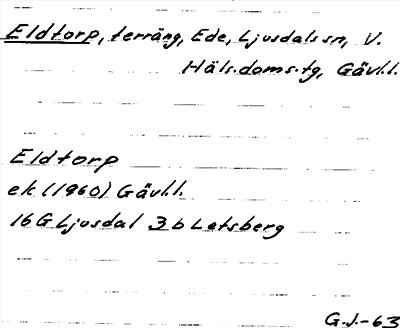 Eldtorp, terräng, Ede, Ljusdals sn, V.
Häls.doms.tg, Gävl.l.
Eldtorp
ek (1960) Gävl.l.
16 G Ljusdal 3 b Letsberg
G.J.-63